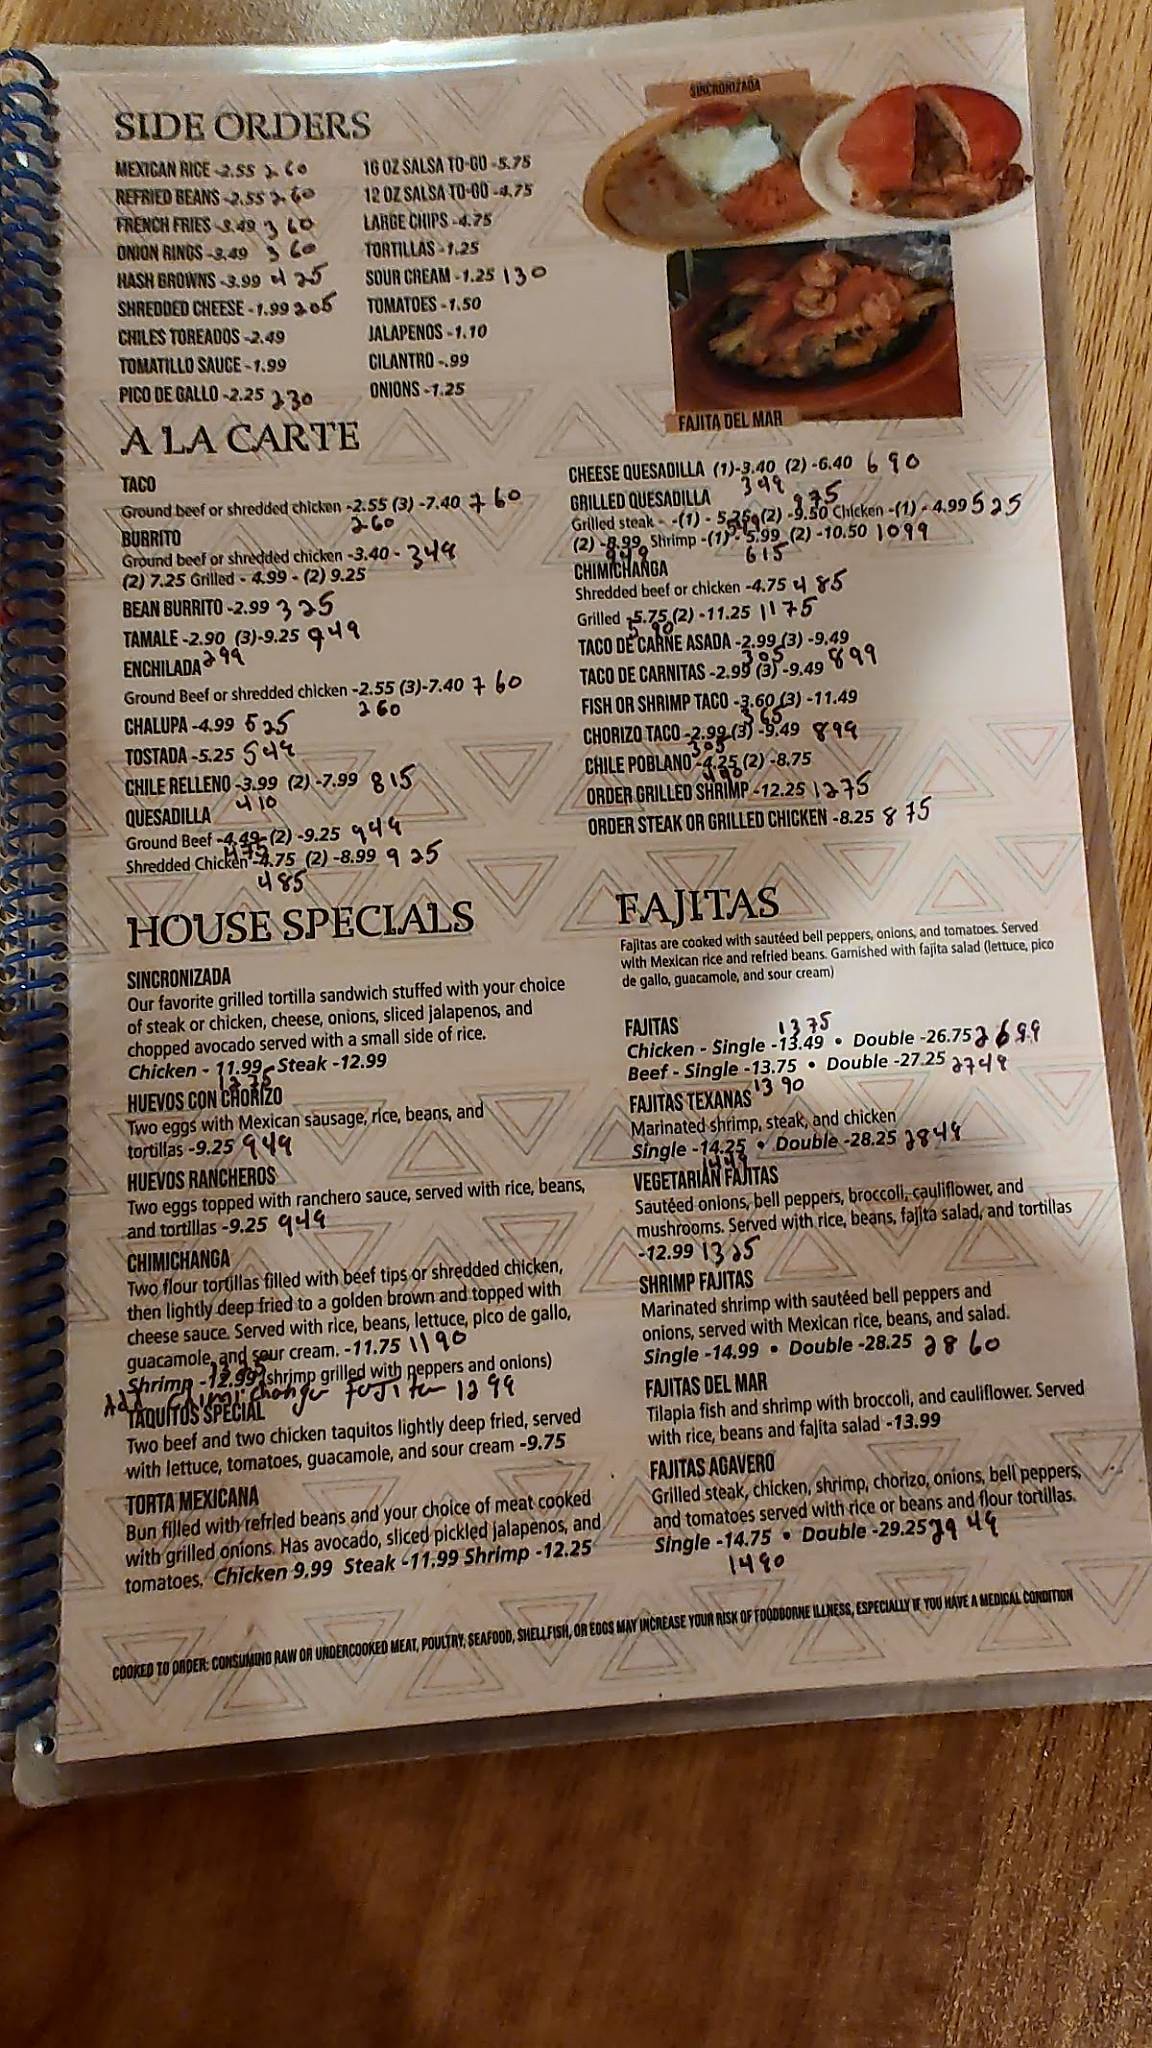 SINCRONIZADA
SIDE ORDERS
MEXICAN RICE -2.55 2 60
REFRIED BEANS -2.55 2 60
FRENCH FRIES -3.49 3 60
ONION RINGS -3.49 3 60
HASH BROWNS -3.99 4 25
SHREDDED CHEESE -1.99 205
CHILES TOREADOS -2.49
TOMATILLO SAUCE -1.99
PICO DE GALLO -2.25 230
16 OZ SALSA TO-GO -5.75
12 OZ SALSA TO-GO -4.75
LARGE CHIPS -4.75
TORTILLAS -1.25
SOUR CREAM -1.25 130
TOMATOES -1.50
JALAPENOS -1.10
CILANTRO -.99
ONIONS -1.25
FAJITA DEL MAR
A LA CARTE
TACO
Ground beef or shredded chicken -2.55 (3) -7.40 7 60
260
BURRITO
Ground beef or shredded chicken -3.40 - 349
(2) 7.25 Grilled - 4.99 - (2) 9.25
BEAN BURRITO -2.99 325
TAMALE -2.90 (3)-9.25 949
299
ENCHILADA
Ground Beef or shredded chicken -2.55 (3)-7.40 7 60
260
CHALUPA -4.99 525
TOSTADA -5.25 549
CHILE RELLENO -3.99 (2) -7.99 815
410
QUESADILLA
Ground Beef -4.49- (2) -9.25 949
475
Shredded Chicken -4.75 (2) -8.99 925
485
CHEESE QUESADILLA (1)-3.40 (2) -6.40 6 90
349
GRILLED QUESADILLA 975
Grilled steak - -(1) - 5.25 (2) -9.50 Chicken -(1) - 4.99 525
549
(2) -8.99 Shrimp -(1) - 5.99 (2) -10.50 1099
949 615
CHIMICHANGA
Shredded beef or chicken -4.75 4 85
Grilled -5.75 (2) -11.25 1175
5 90
TACO DE CARNE ASADA -2.99 (3) -9.49
305
TACO DE CARNITAS -2.99 (3) -9.49 899
FISH OR SHRIMP TACO -3.60 (3) -11.49
365
CHORIZO TACO -2.99 (3) -9.49 899
305
CHILE POBLANO -4.25 (2) -8.75
490
ORDER GRILLED SHRIMP -12.25 1275
ORDER STEAK OR GRILLED CHICKEN -8.25 875
HOUSE SPECIALS
SINCRONIZADA
Our favorite grilled tortilla sandwich stuffed with your choice
of steak or chicken, cheese, onions, sliced jalapenos, and
chopped avocado served with a small side of rice.
Chicken - 11.99 Steak -12.99
1275
HUEVOS CON CHORIZO
Two eggs with Mexican sausage, rice, beans, and
tortillas -9.25 949
HUEVOS RANCHEROS
Two eggs topped with ranchero sauce, served with rice, beans,
and tortillas -9.25 949
CHIMICHANGA
Two flour tortillas filled with beef tips or shredded chicken,
then lightly deep fried to a golden brown and topped with
cheese sauce. Served with rice, beans, lettuce, pico de gallo,
guacamole, and sour cream. -11.75 1190
Shrimp -12.99 (shrimp grilled with peppers and onions)
Chimichanga Fajita 1299
TAQUITOS SPECIAL
Two beef and two chicken taquitos lightly deep fried, served
with lettuce, tomatoes, guacamole, and sour cream -9.75
TORTA MEXICANA
Bun filled with refried beans and your choice of meat cooked
with grilled onions. Has avocado, sliced pickled jalapenos, and
tomatoes. Chicken 9.99 Steak -11.99 Shrimp -12.25
FAJITAS
Fajitas are cooked with sautéed bell peppers, onions, and tomatoes. Served
with Mexican rice and refried beans. Garnished with fajita salad (lettuce, pico
de gallo, guacamole, and sour cream)
FAJITAS 1375
Chicken - Single -13.49 • Double -26.75 2699
Beef - Single -13.75 • Double -27.25 2749
1390
FAJITAS TEXANAS
Marinated shrimp, steak, and chicken
Single -14.25 • Double -28.25 2849
1449
VEGETARIAN FAJITAS
Sautéed onions, bell peppers, broccoli, cauliflower, and
mushrooms. Served with rice, beans, fajita salad, and tortillas
-12.99 1325
SHRIMP FAJITAS
Marinated shrimp with sautéed bell peppers and
onions, served with Mexican rice, beans, and salad.
Single -14.99 • Double -28.25 2860
FAJITAS DEL MAR
Tilapia fish and shrimp with broccoli, and cauliflower. Served
with rice, beans and fajita salad -13.99
FAJITAS AGAVERO
Grilled steak, chicken, shrimp, chorizo, onions, bell peppers,
and tomatoes served with rice or beans and flour tortillas.
Single -14.75 • Double -29.25 2949
1490
COOKED TO ORDER: CONSUMING RAW OR UNDERCOOKED MEAT, POULTRY, SEAFOOD, SHELLFISH, OR EGGS MAY INCREASE YOUR RISK OF FOODBORNE ILLNESS, ESPECIALLY IF YOU HAVE A MEDICAL CONDITION